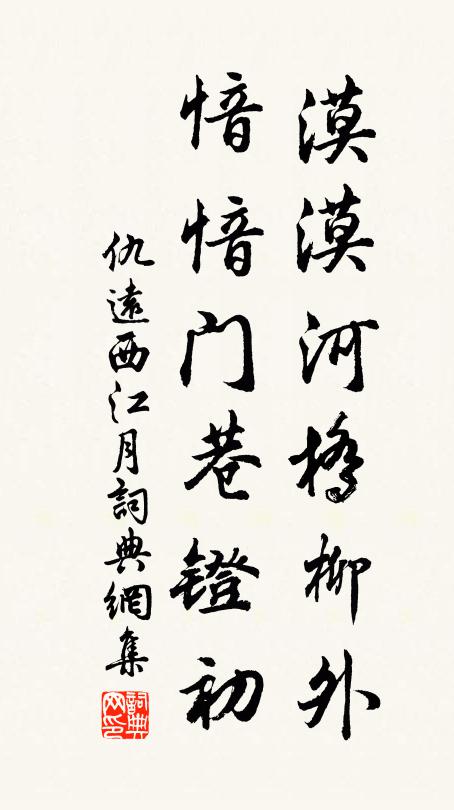 漠漠河橋柳外
愔愔门巷鐙初
仇遠西江月詞典網集
詞典网印